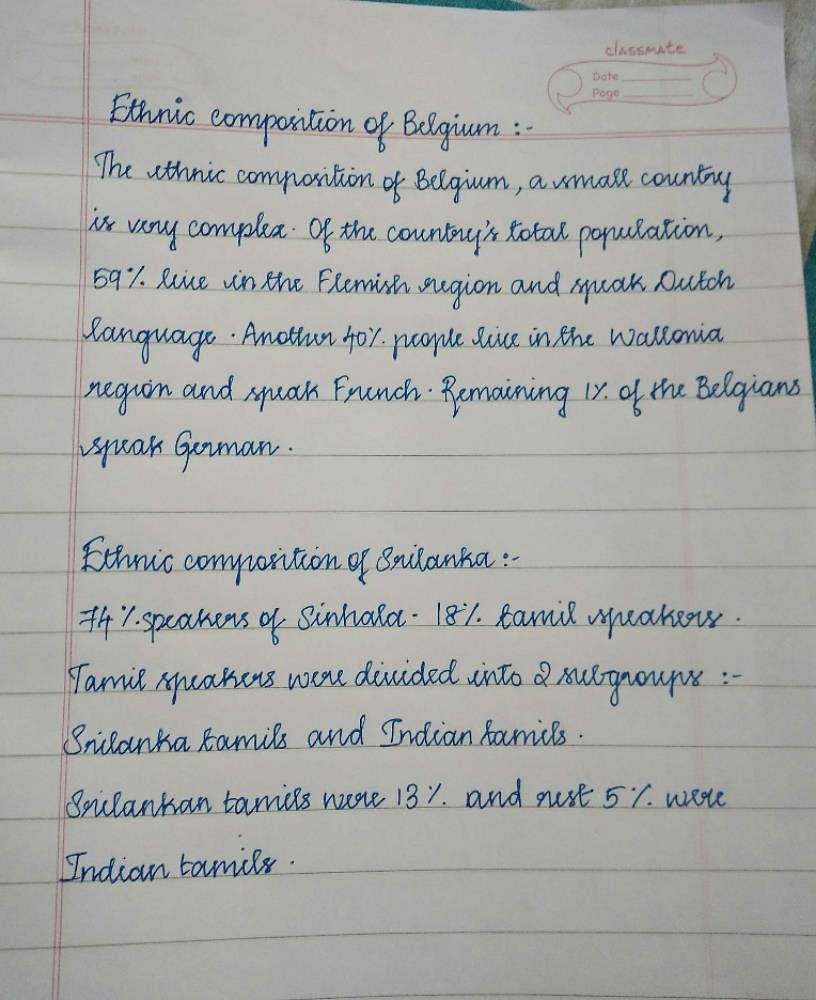 classmate
Date
Page
Ethnic composition of Belgium :-
The ethnic composition of Belgium, a small country
is very complex. Of the country's total population,
59% live in the Flemish region and speak Dutch
language. Another 40% people live in the Wallonia
region and speak French. Remaining 1% of the Belgians
speak German.
Ethnic composition of Srilanka :-
74% speakers of Sinhala - 18% tamil speakers.
Tamil speakers were divided into 2 subgroups :-
Srilanka tamils and Indian tamils.
Srilankan tamils were 13% and rest 5% were
Indian tamils.